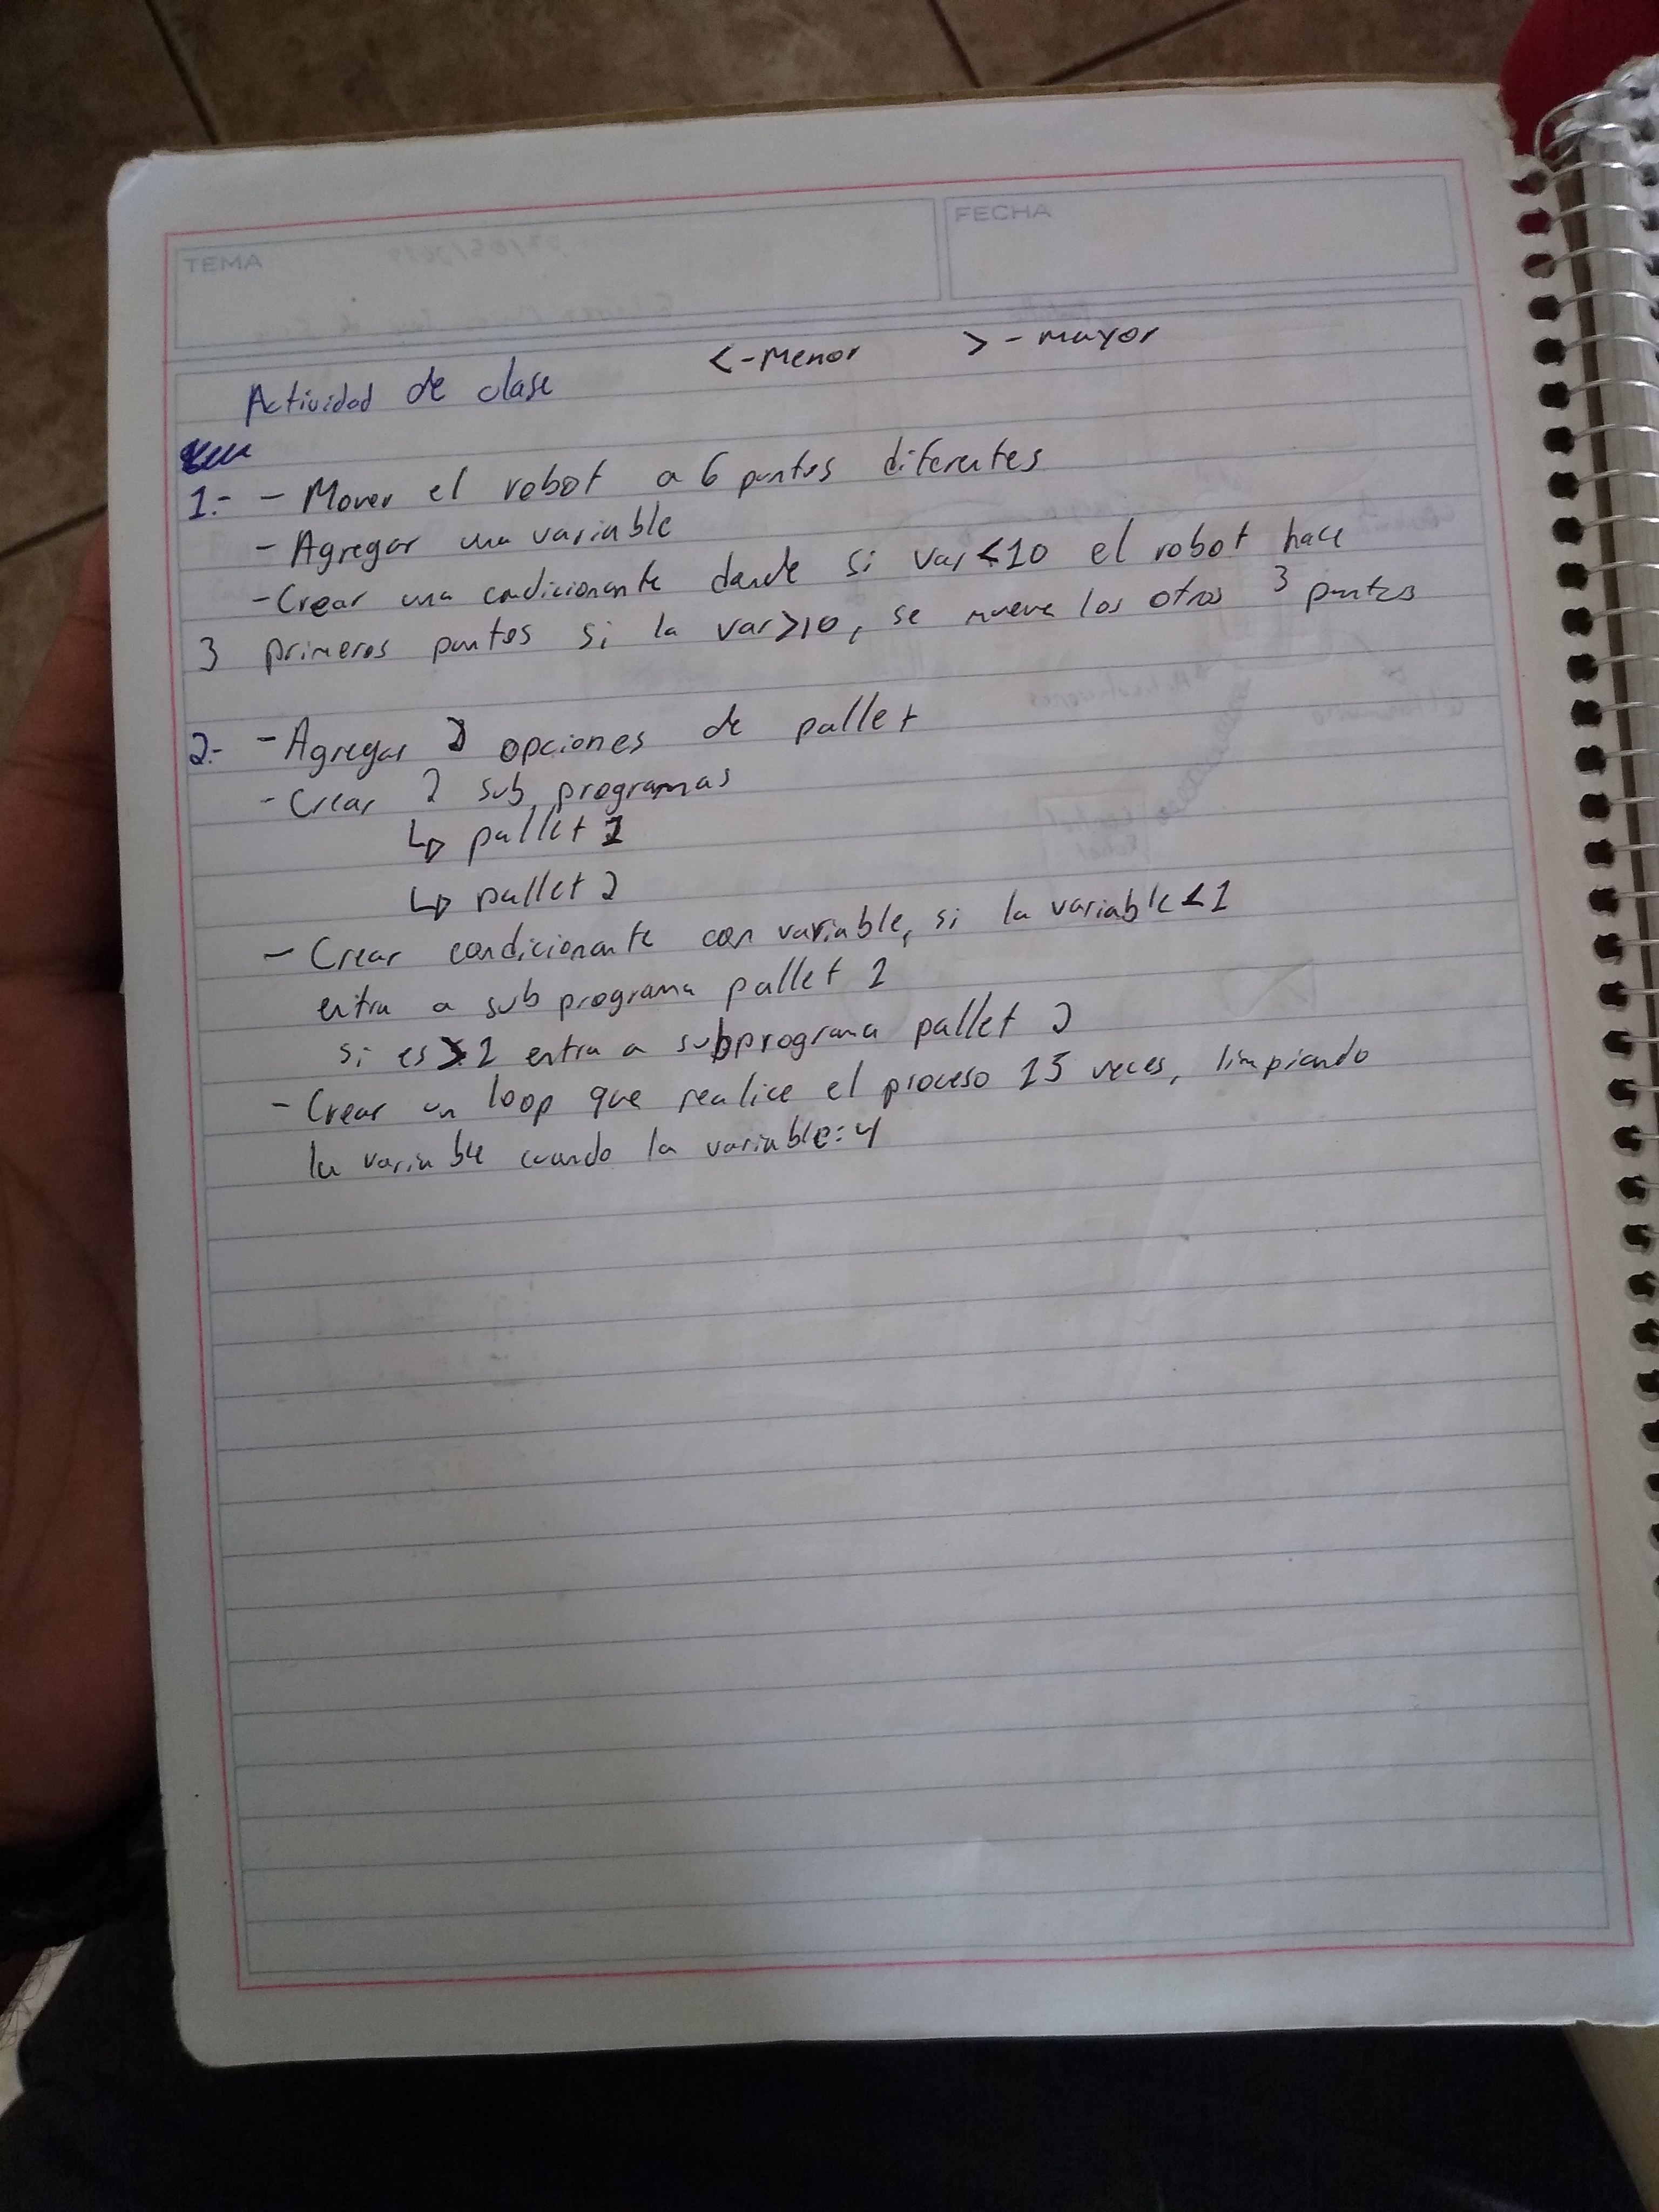 TEMA
FECHA
<-Menor >-mayor
Actividad de clase
1.- - Mover el robot a 6 puntos diferentes
- Agregar una variable
- Crear una condicionante donde si var<10 el robot hace
3 primeros puntos si la var>10, se mueve los otros 3 puntos
2.- - Agregar 2 opciones de pallet
- Crear 2 sub programas
↳ pallet 1
↳ pallet 2
- Crear condicionante con variable, si la variable<1
entra a sub programa pallet 1
si es>1 entra a subprograma pallet 2
- Crear un loop que realice el proceso 15 veces, limpiando
la variable cuando la variable=4